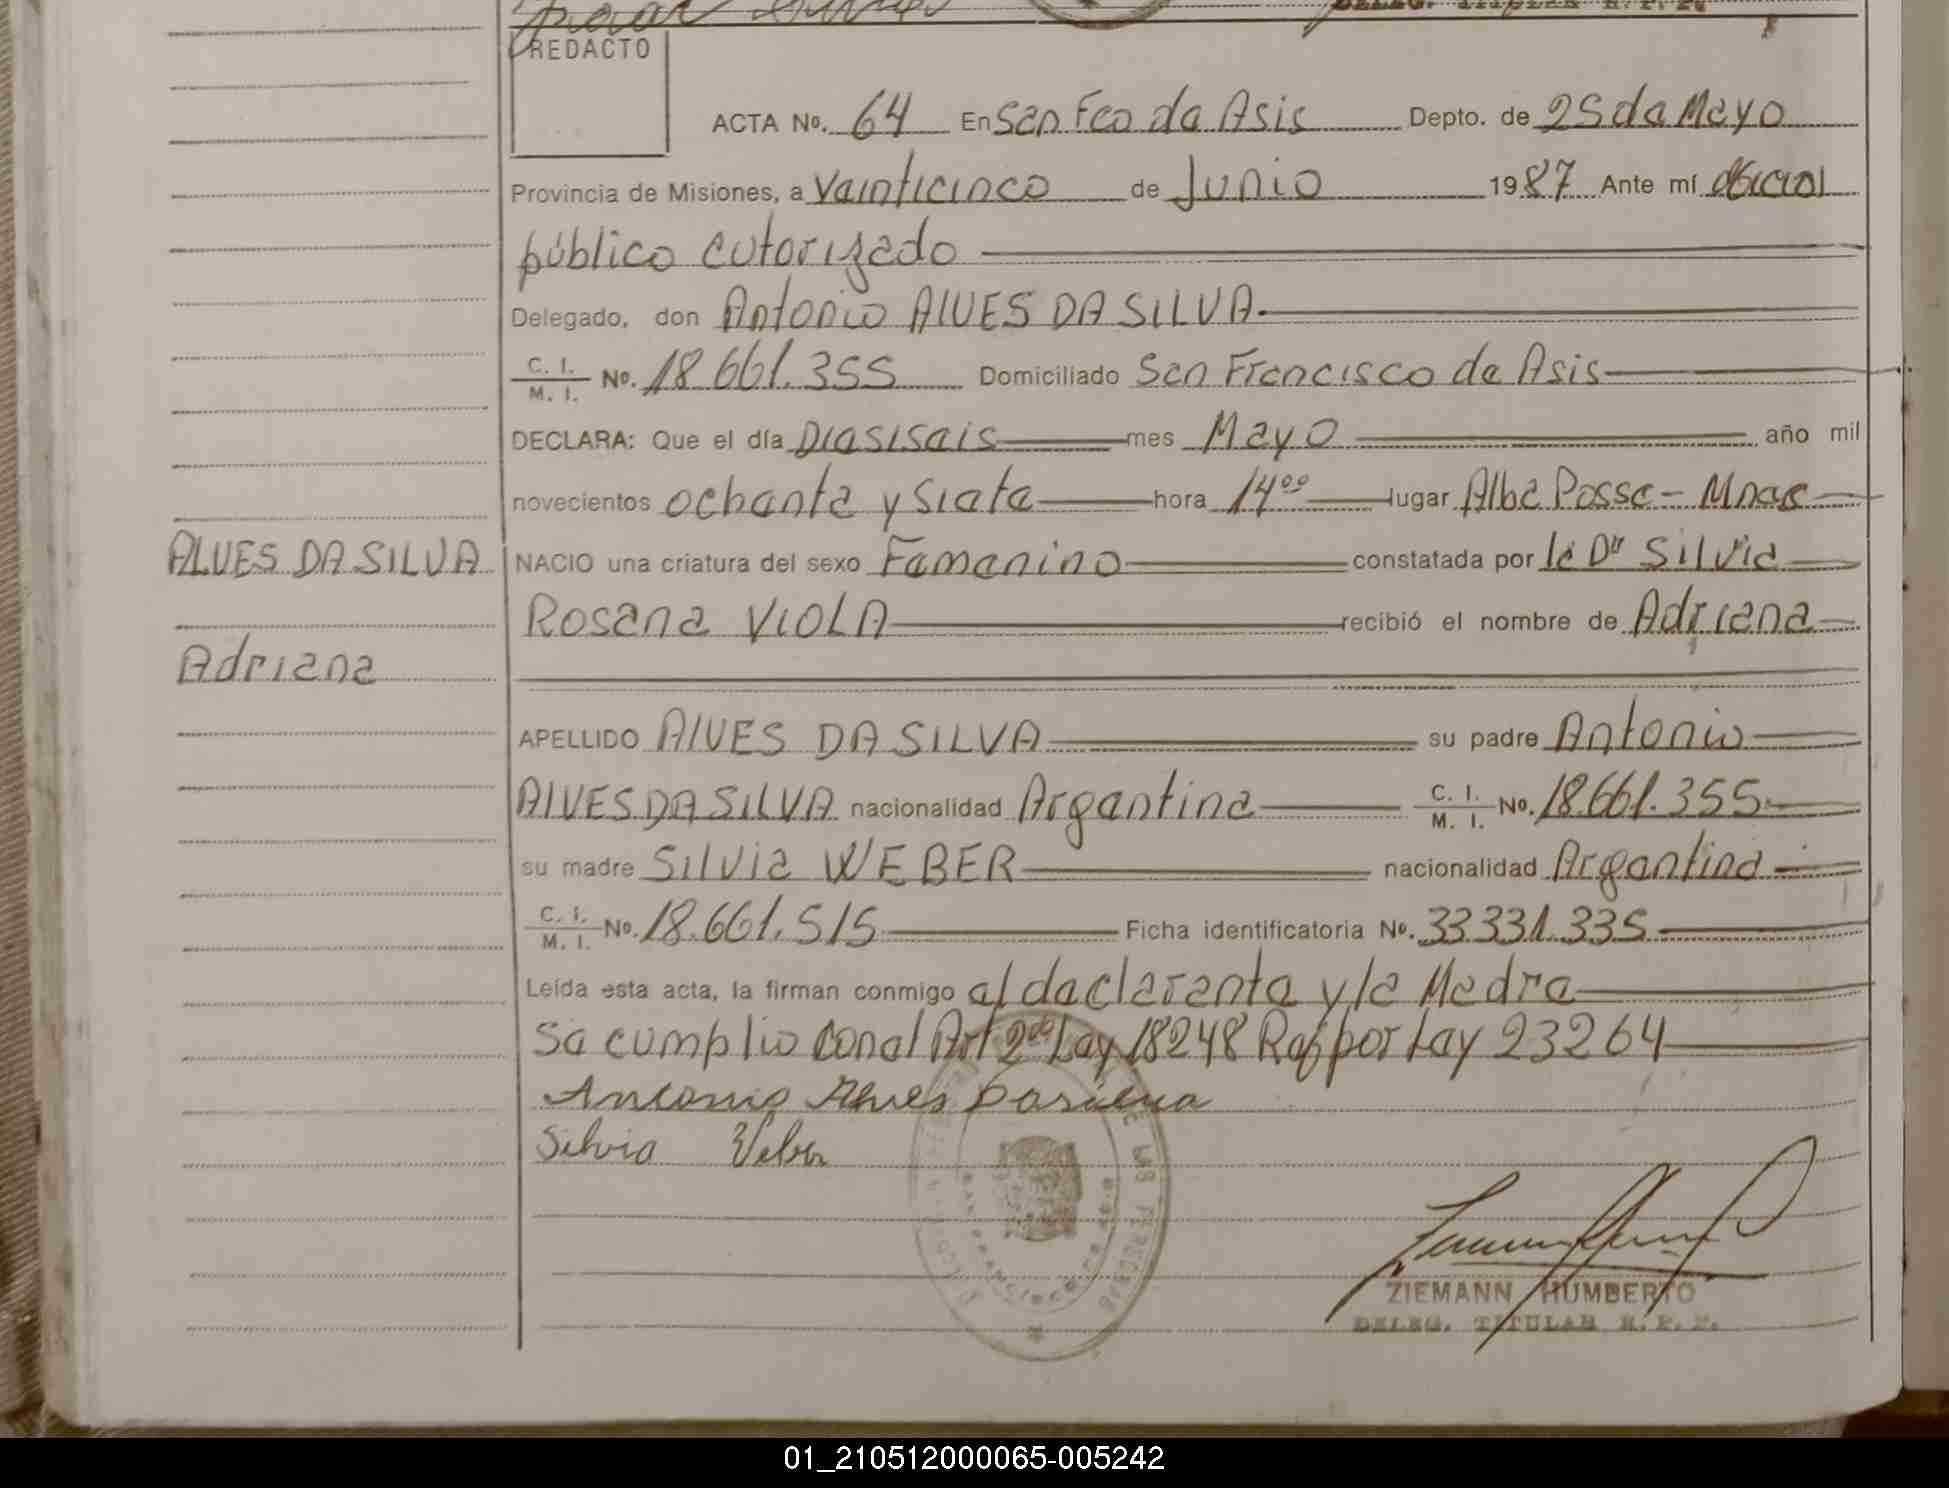 REDACTO
ACTA No. 64 En San Fco de Asis Depto. de 25 de Mayo
Provincia de Misiones, a Veinticinco de Junio 1987 Ante mí oficial
público autorizado
Delegado, don Antonio ALVES DA SILVA.
C. I. / M. I. No. 18.661.355 Domiciliado San Francisco de Asis
DECLARA: Que el día Dieciseis mes Mayo año mil
novecientos ochenta y siete hora 14⁰⁰ lugar Alba Posse - Mnes
ALVES DA SILVA
NACIO una criatura del sexo Femenino constatada por la Dra Silvia
Rosana VIOLA recibió el nombre de Adriana
Adriana
APELLIDO ALVES DA SILVA su padre Antonio
ALVES DA SILVA nacionalidad Argentina C. I. / M. I. No. 18.661.355
su madre Silvia WEBER nacionalidad Argentina
C. I. / M. I. No. 18.661.515 Ficha identificatoria No. 33.331.335
Leída esta acta, la firman conmigo el declarante y la Madre
Se cumplio con el Art 2do Ley 18248 Ref por Ley 23264
Antonio Alves Dasilva
Silvia Veber
DE LAS PERSONAS
ZIEMANN HUMBERTO
DELEG. TITULAR R. P. P.
01_210512000065-005242